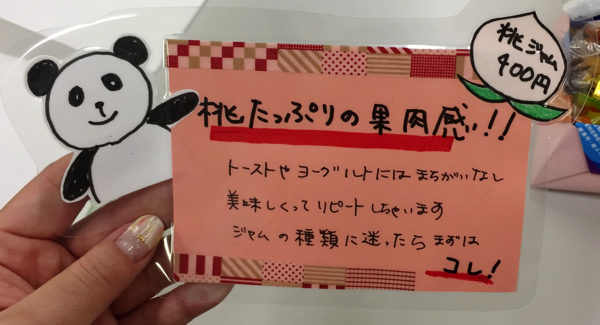 桃ジャム
400円
桃たっぷりの果肉感!!
トーストやヨーグルトにはまちがいなし
美味しくってリピートしちゃいます
ジャムの種類に迷ったらまずは
コレ!